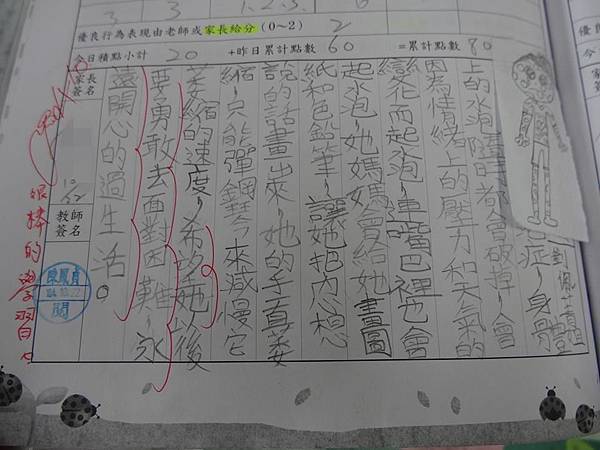 3 3 1.2.3. 6
優良行為表現由老師或家長給分(0~2) 2
今日積點小計 20 +昨日累計點數 60 =累計點數 80
家長簽名
10/22
教師簽名
症,身體
上的水泡隨時都會破掉,人會
因為情緒上的壓力和天氣的
變化而起水泡,連嘴巴裡也會
起水泡,她媽媽會給她畫圖
紙和色鉛筆,讓她把內心想
說的話畫出來,她的手直萎
縮,只能彈鋼琴來減慢它
萎縮的速度,希望她以後
要勇敢去面對困難,永
遠開心的過生活。
很棒的學習
陳鳳貞
閱